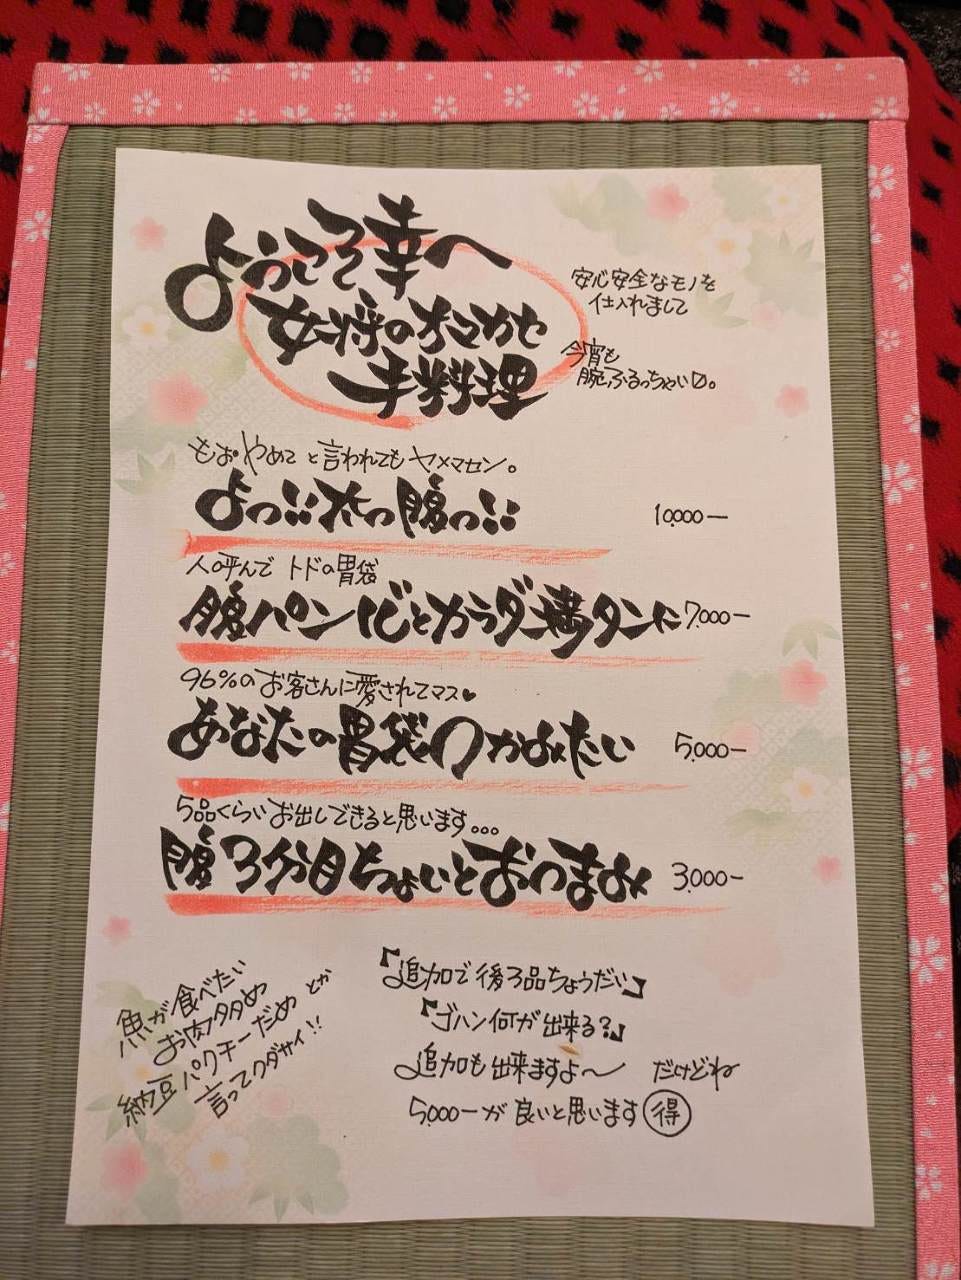 ようこそ幸へ
女将のオマカセ
手料理
安心安全なモノを
仕入れまして
今宵も
腕ふるっちゃいマ。
もお、やめて と言われても ヤメマセン。
よっ!!太っ腹っ!! 10,000ー
人呼んで トドの胃袋
腹パンパンとカラダ満タンに 7,000ー
96%のお客さんに愛されてマス♥
あなたの胃袋つかみたい 5,000ー
5品くらいお出しできると思います。。。
腹3分目ちょいとおつまみ 3,000ー
魚が食べたい
お肉多め
納豆パクチーだめ とか
言ってクダサイ!!
『追加で後3品ちょうだい』
『ゴハン何が出来る?』
追加も出来ますよ〜 だけどね
5,000ーが良いと思います 得